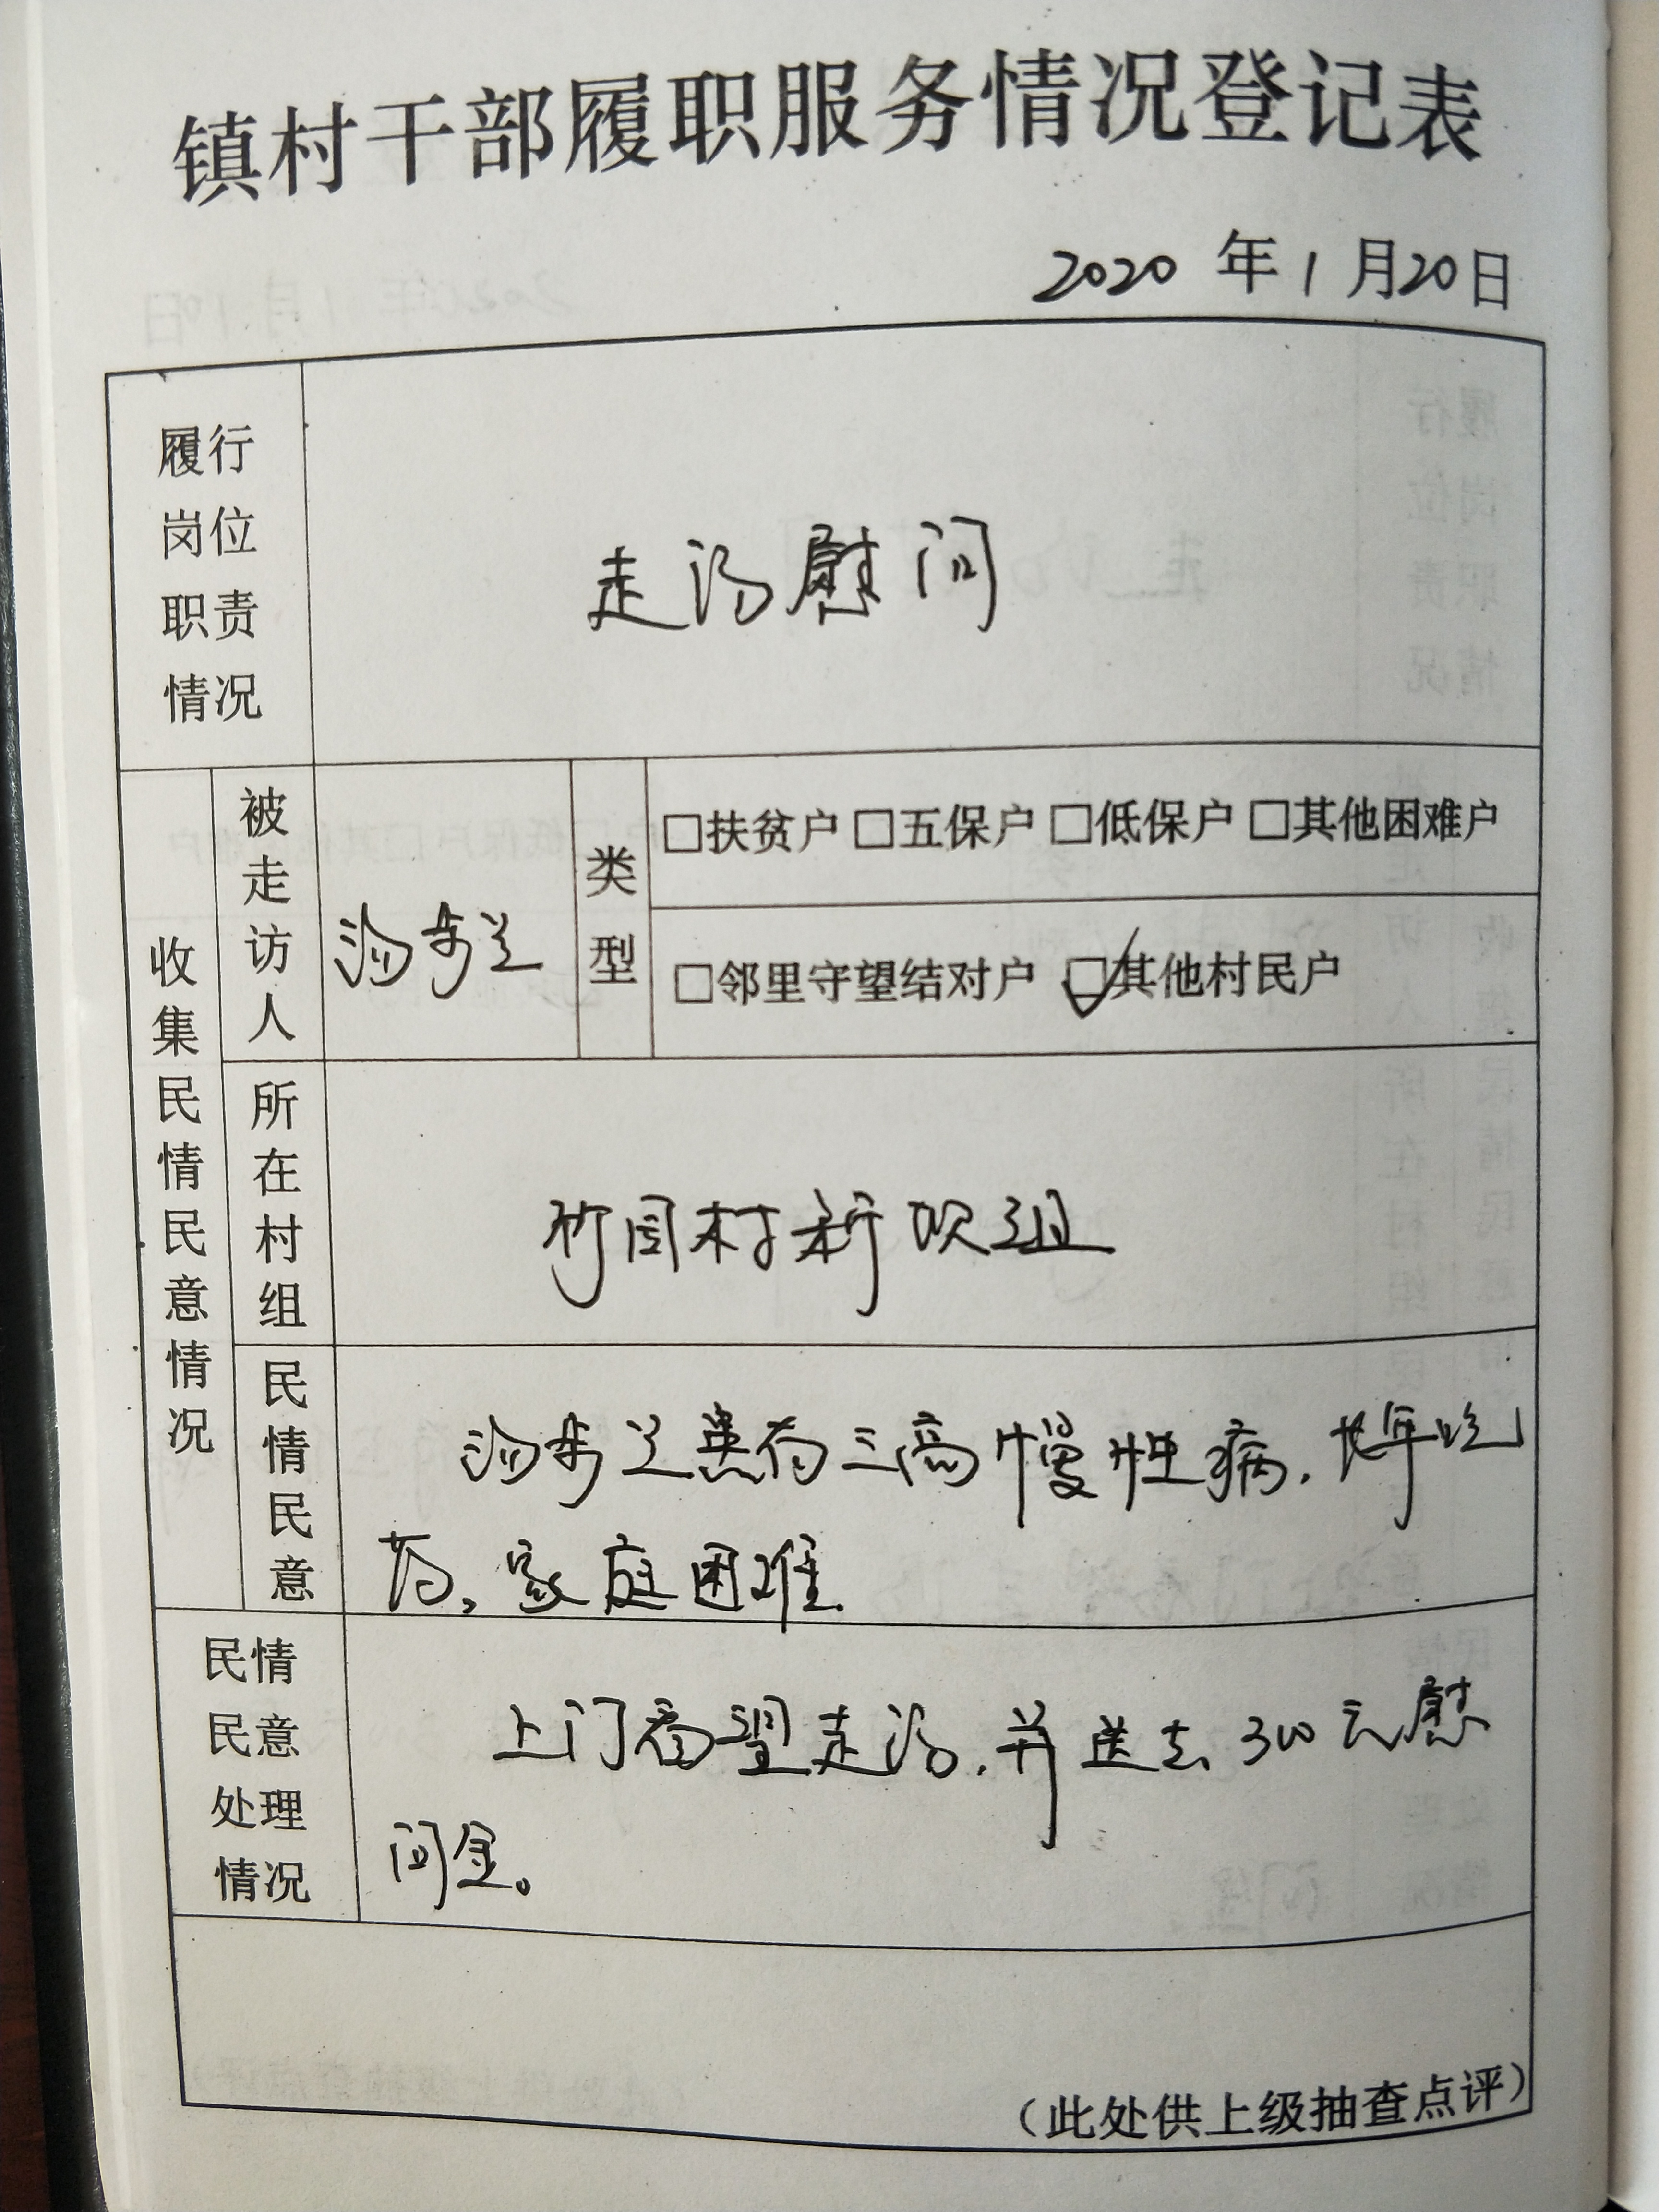 镇村干部履职服务情况登记表
2020年1月20日
履行
岗位
职责
情况
走访慰问
收集民情民意情况
被走访人
类型
□扶贫户 □五保户 □低保户 □其他困难户
□邻里守望结对户 ☑其他村民户
所在村组
竹园村新坝组
民情民意
患有三高慢性病,长年吃
药。家庭困难.
民情
民意
处理
情况
上门看望走访,并送去300元慰
问金。
(此处供上级抽查点评)